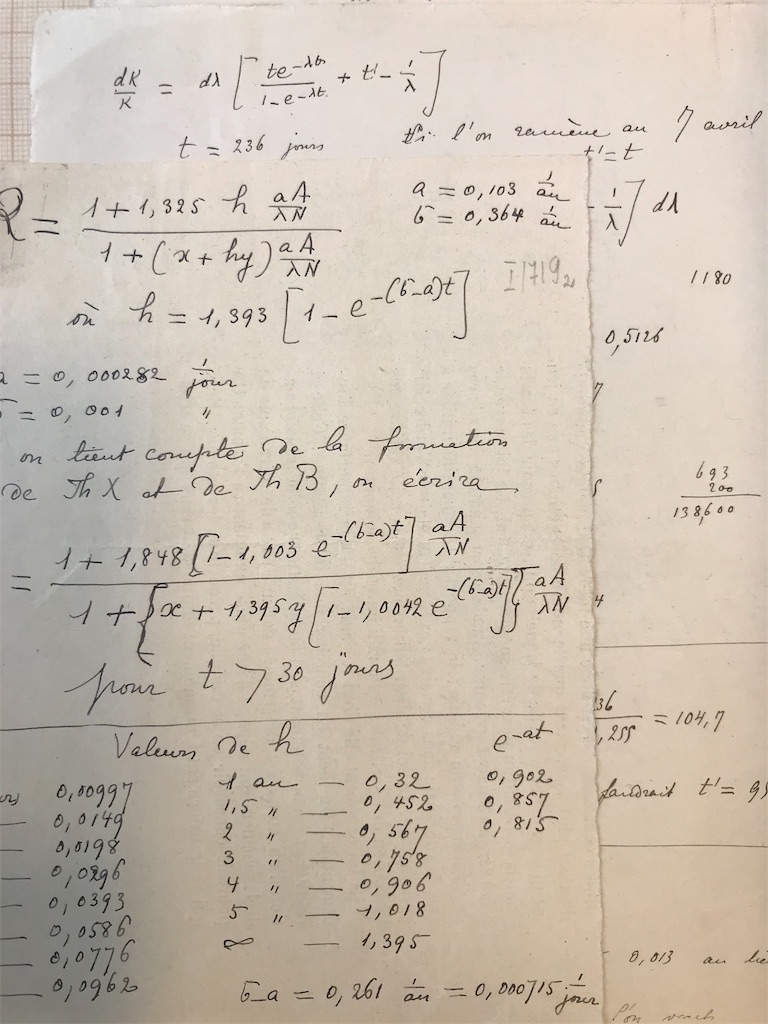 dK/K = dλ [ te^-λt / 1-e^-λt + t' - 1/λ ]
t = 236 jours
Si l'on ramène au 7 avril
t' = t
- 1/λ ] dλ
1180
0,5126
7
693
200
138,600
4
36 / 1,255 = 104,7
faudrait t' = 95
0,013 au lie
l'on
R = 1 + 1,325 h aA/λN / 1 + (x + hy) aA/λN
a = 0,103 1/an
b = 0,364 1/an
I/7/92
où h = 1,393 [ 1 - e^-(b-a)t ]
a = 0,000282 1/jour
b = 0,001 "
on tient compte de la formation
de Th X et de Th B, on écrira
= 1 + 1,848 [ 1-1,003 e^-(b-a)t ] aA/λN / 1 + { x + 1,395 y [ 1-1,0042 e^-(b-a)t ] } aA/λN
pour t > 30 jours
Valeurs de h e^-at
rs 0,00997 1 an — 0,32 0,902
— 0,0149 1,5 " — 0,452 0,857
— 0,0198 2 " — 0,567 0,815
— 0,0296 3 " — 0,758
— 0,0393 4 " — 0,906
— 0,0586 5 " — 1,018
— 0,0776 ∞ — 1,395
— 0,0962
b-a = 0,261 1/an = 0,000715 1/jour